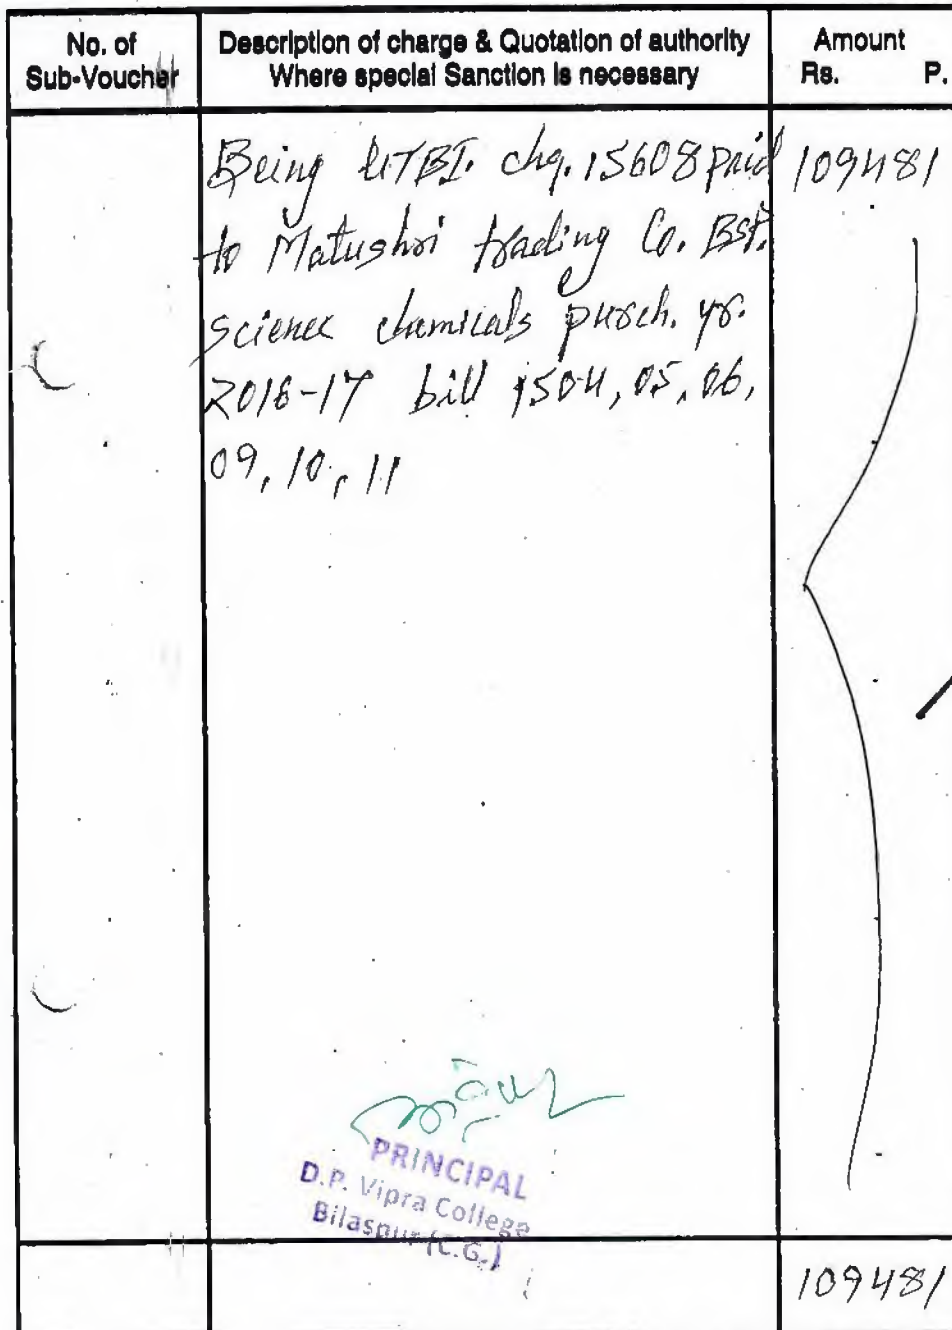 No. of
Sub-Voucher
Description of charge & Quotation of authority
Where special Sanction is necessary
Amount
Rs. P.
Being UTBI. chq. 15608 paid
to Matushri trading Co. BSP.
science chamicals purch. yr.
2016-17 bill 1504, 05, 06,
09, 10, 11
109481
PRINCIPAL
D.P. Vipra College
Bilaspur (C.G.)
109481